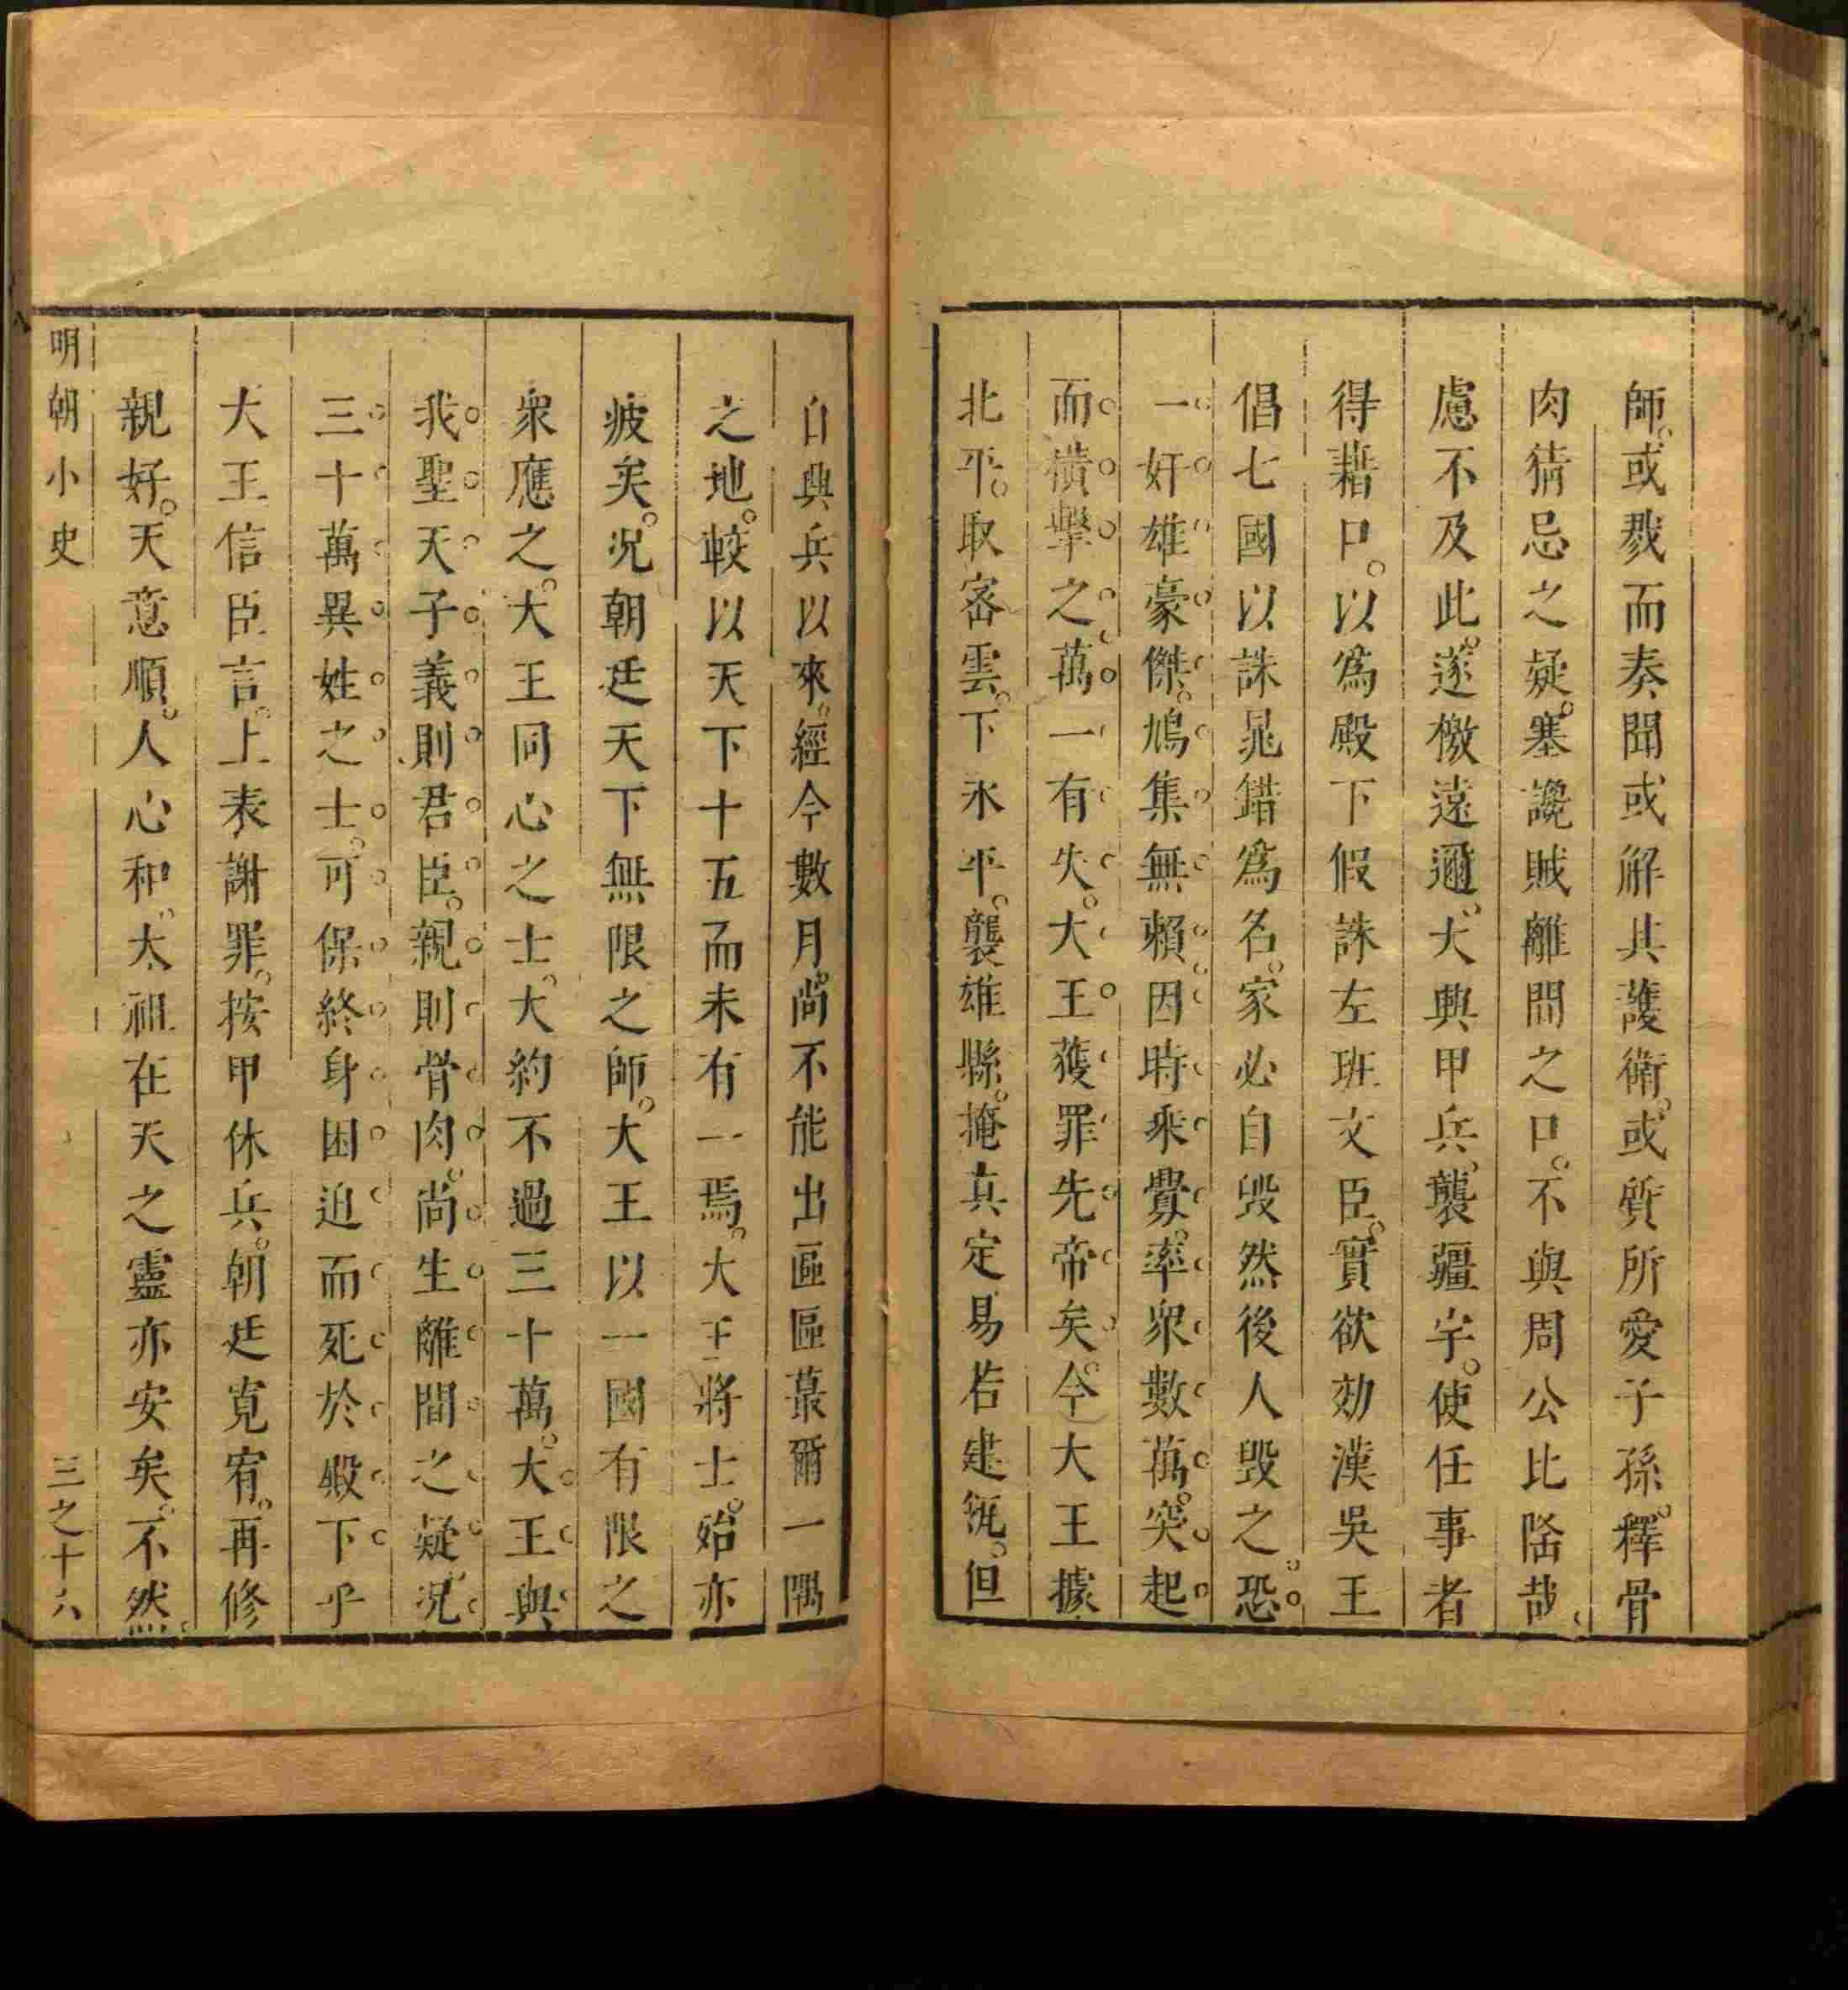 師。或戮而奏聞或解其護衛。或質所愛子孫。釋骨
肉猜忌之疑。塞讒賊離間之口。不與周公比隆哉。
慮不及此。遂檄遠邇。大興甲兵。襲疆宇。使任事者
得藉口。以為殿下假誅左班文臣。實欲効漢吳王
倡七國以誅晁錯為名。家必自毀然後人毀之。恐
一奸雄豪傑。鳩集無賴。因時乘釁。率眾數萬。突起
而橫擊之。萬一有失。大王獲罪先帝矣。今大王據
北平。取密雲。下永平。襲雄縣。掩真定。易若建瓴。但
自興兵以來。經今數月。尚不能出區區蕞爾一隅
之地。較以天下十五而未有一焉。大王將士。殆亦
疲矣。況朝廷天下無限之師。大王以一國有限之
眾應之。大王同心之士。大約不過三十萬。大王與
我聖天子義則君臣。親則骨肉。尚生離間之疑。況
三十萬異姓之士。可保終身困迫而死於殿下乎
大王信臣言。上表謝罪。按甲休兵。朝廷寬宥。再修
親好。天意順。人心和。太祖在天之靈亦安矣。不然。
明朝小史
三之十六